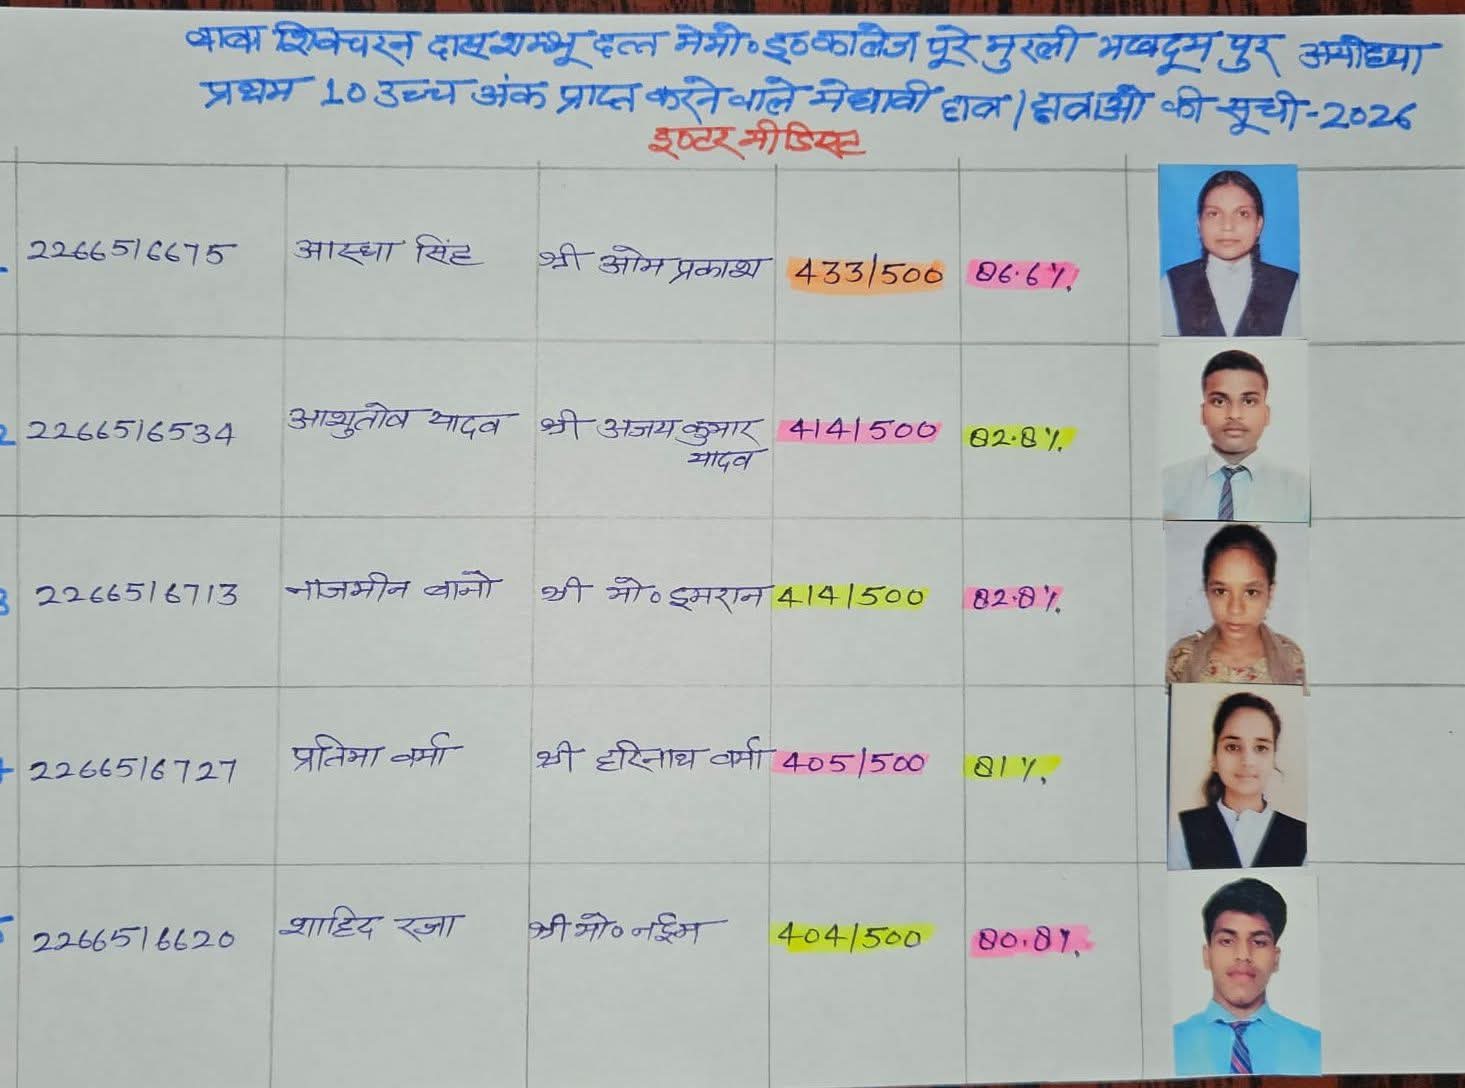 बाबा शिवचरन दास शम्भू दत्त मेमो० इ० कालेज पूरे मुरली मख्दूमपुर अयोध्या
प्रथम 10 उच्च अंक प्राप्त करने वाले मेधावी छात्र/छात्राओं की सूची-2026
इण्टरमीडिएट
2266516675 आस्था सिंह श्री ओम प्रकाश 433/500 86.6%
2 2266516534 आशुतोष यादव श्री अजय कुमार 414/500 82.8%
यादव
3 2266516713 नाजमीन बानो श्री मो० इमरान 414/500 82.8%
2266516727 प्रतिमा वर्मा श्री हरिनाथ वर्मा 405/500 81%
5 2266516620 शाहिद रजा श्री मो० नईम 404/500 80.8%